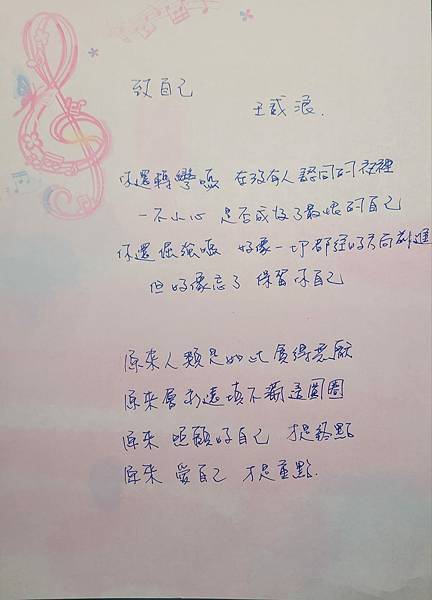 致自己
王武浪.
你還轉彎嗎 在沒有人認同的夜裡
一不小心 是否成為了最壞的自己
你還倔強嗎 好像一切都往好方向前進
但好像忘了 保留你自己
原來人類是如此貪得無厭
原來層永遠填不滿這圓圈
原來 照顧好自己 才是終點
原來 愛自己 才是重點.